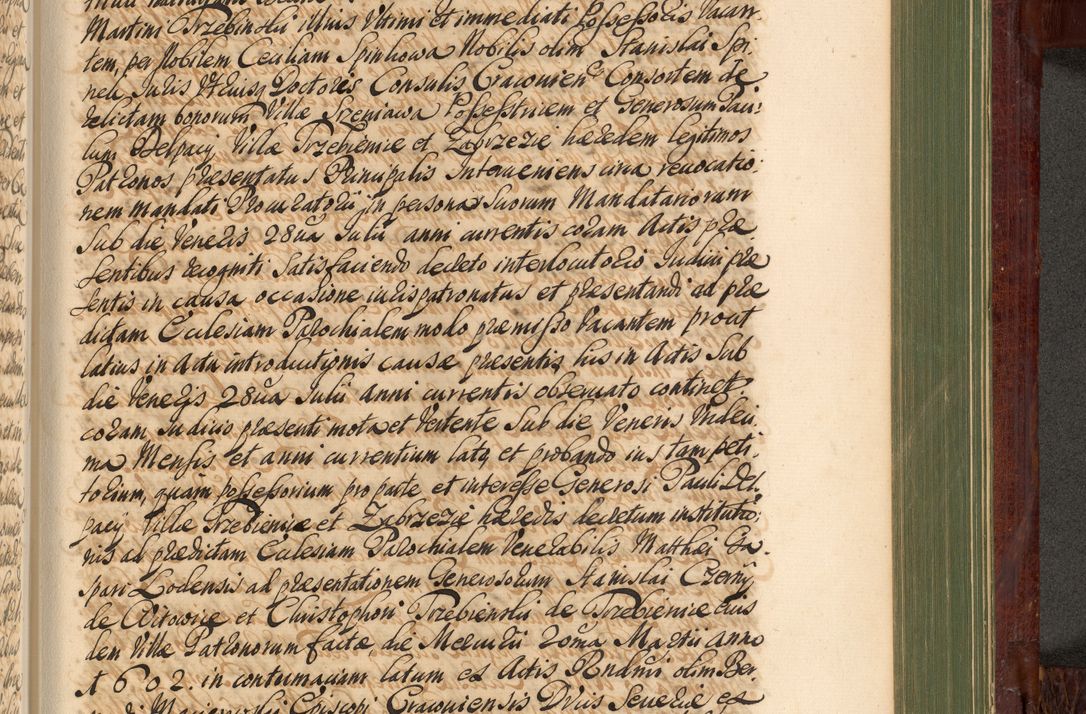 Martini Trzebinski Unis Ultimi et immediati Possessoris Vacan-
tem, per Nobilem Ceciliam Spinkowa Nobilis olim Stanislai Spi-
nek Juris Utriusq Doctoris Consulis Cracovien Consortem de
relictam bonorum Villæ Szeniawa Possestricem et Generosum Pau-
lum Delpacy Villæ Trzebienice et Zabrzezie hæredem legitimos
Patronos præsentatus Principalis Interveniens circa revocatio-
nem Mandati Procuratorii in personas suorum Mandatariorum
sub die Veneris 28va Julii anni currentis coram Actis præ
sentibus recogniti satisfaciendo decreto interlocutorio Judicii præ
sentis in causa occasione iurispatronatus et præsentandi ad præ
dictam Ecclesiam Parochialem modo præmisso Vacantem prout
latius in Actu introductionis causæ præsentis his in Actis Sub
die Veneris 28va Julii anni currentis observato continet,
coram Judicio præsenti mota et Vertente Sub die Veneris Undeci
ma Mensis et anni currentium lato, et probando ius tam peti-
torium, quam possessorium pro parte et interesse Generosi Pauli Del
pacy Villæ Trzebienice et Zabrzezie hæredis decretum institutio-
nis ad prædictam Ecclesiam Parochialem Venerabilis Matthæi Ga-
spari Lodensis ad præsentationem Generosorum Stanislai Czerny
de Witowice et Christophori Trzebienski de Trzebienice eius
dem Villæ Patronorum factæ, die Mercurii 20ma Martii anno
1602. in contumaciam latum ex Actis Rndmi olim Ber
Maciejowski Episcopi Cracoviensis Ducis Severiæ ex